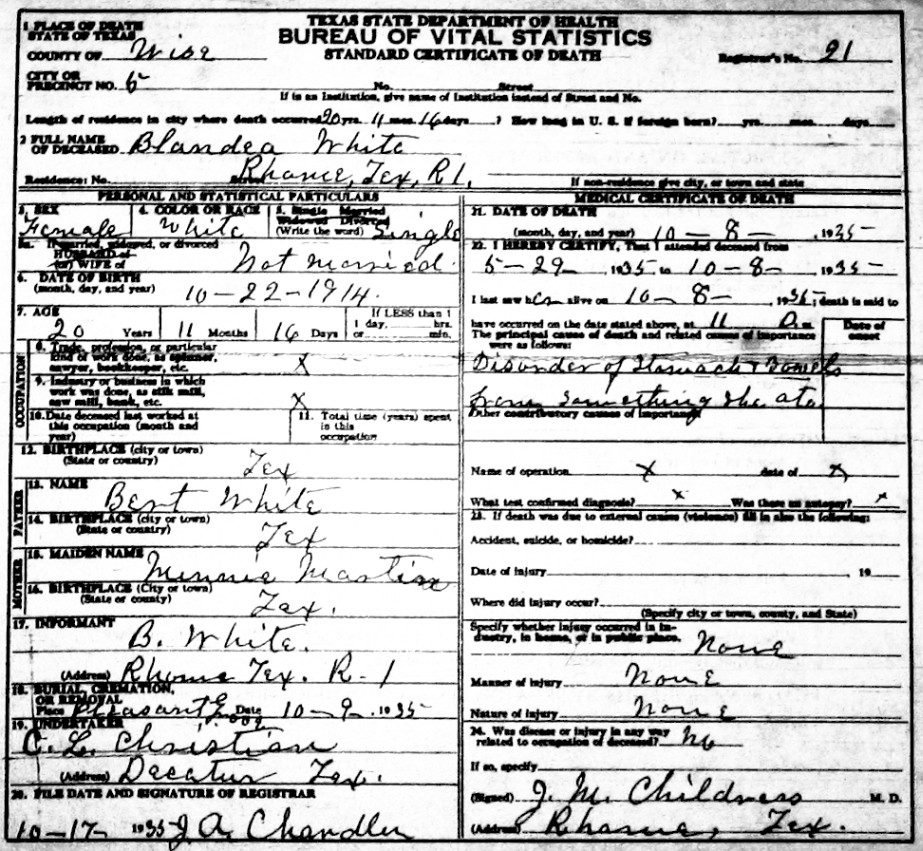 TEXAS STATE DEPARTMENT OF HEALTH
BUREAU OF VITAL STATISTICS
STANDARD CERTIFICATE OF DEATH
1 PLACE OF DEATH
STATE OF TEXAS
COUNTY OF Wise
Registrar's No. 21
CITY OR
PRECINCT NO. 5 No. Street
If in an Institution, give name of Institution instead of Street and No.
Length of residence in city where death occurred 20 yrs. 11 mos. 16 days ? How long in U. S. if foreign born? yrs. mos. days
2 FULL NAME
OF DECEASED Blandea White
Residence: No. Street Rhome, Tex, R 1.
If non-residence give city, or town and state
PERSONAL AND STATISTICAL PARTICULARS
3. SEX
Female
4. COLOR OR RACE
White
5. Single Married
Widowed Divorced
(Write the word) Single
5a. If married, widowed, or divorced
HUSBAND of
(or) WIFE of Not married.
6. DATE OF BIRTH
(month, day, and year) 10-22-1914.
7. AGE
20 Years 11 Months 16 Days
If LESS than 1
1 day, hrs.
or min.
OCCUPATION
8. Trade, profession, or particular
kind of work done, as spinner,
sawyer, bookkeeper, etc. x
9. Industry or business in which
work was done, as silk mill,
saw mill, bank, etc. x
10. Date deceased last worked at
this occupation (month and
year)
11. Total time (years) spent
in this
occupation
12. BIRTHPLACE (city or town)
(State or country) Tex
FATHER
13. NAME
Bert White
14. BIRTHPLACE (city or town)
(State or country) Tex
MOTHER
15. MAIDEN NAME
Minnie Martin
16. BIRTHPLACE (City or town)
(State or country) Tex.
17. INFORMANT
B. White.
(Address) Rhome Tex. R-1
18. BURIAL, CREMATION,
OR REMOVAL
Place Pleasant Grove Date 10-9-1935
19. UNDERTAKER
C. L. Christian
(Address) Decatur Tex.
20. FILE DATE AND SIGNATURE OF REGISTRAR
10-17- 1935 J. A. Chandler
MEDICAL CERTIFICATE OF DEATH
21. DATE OF DEATH
(month, day, and year) 10-8-, 1935
22. I HEREBY CERTIFY, That I attended deceased from
5-29-, 1935, to 10-8-, 1935
I last saw her alive on 10-8-, 1935; death is said to
have occurred on the date stated above, at 11 m.
The principal cause of death and related causes of importance
were as follows:
Date of
onset
Disorder of Stomach & Bowels
from something she ate
Other contributory causes of importance:
Name of operation x date of x
What test confirmed diagnosis? x Was there an autopsy? x
23. If death was due to external causes (violence) fill in also the following:
Accident, suicide, or homicide?
Date of injury 19
Where did injury occur?
(Specify city or town, county, and State)
Specify whether injury occurred in in-
dustry, in home, or in public place.
None
Manner of injury None
Nature of injury None
24. Was disease or injury in any way
related to occupation of deceased? No
If so, specify
(Signed) J. M. Childress M. D.
(Address) Rhome, Tex.